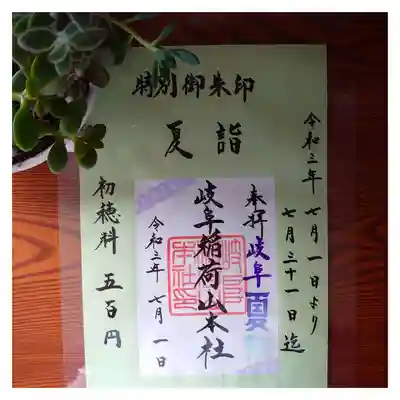 特別御朱印
夏詣
令和三年 七月一日より
七月三十一日迄
奉拝 岐阜 夏
岐阜稲荷山本社
令和三年 七月一日
初穂料 五百円